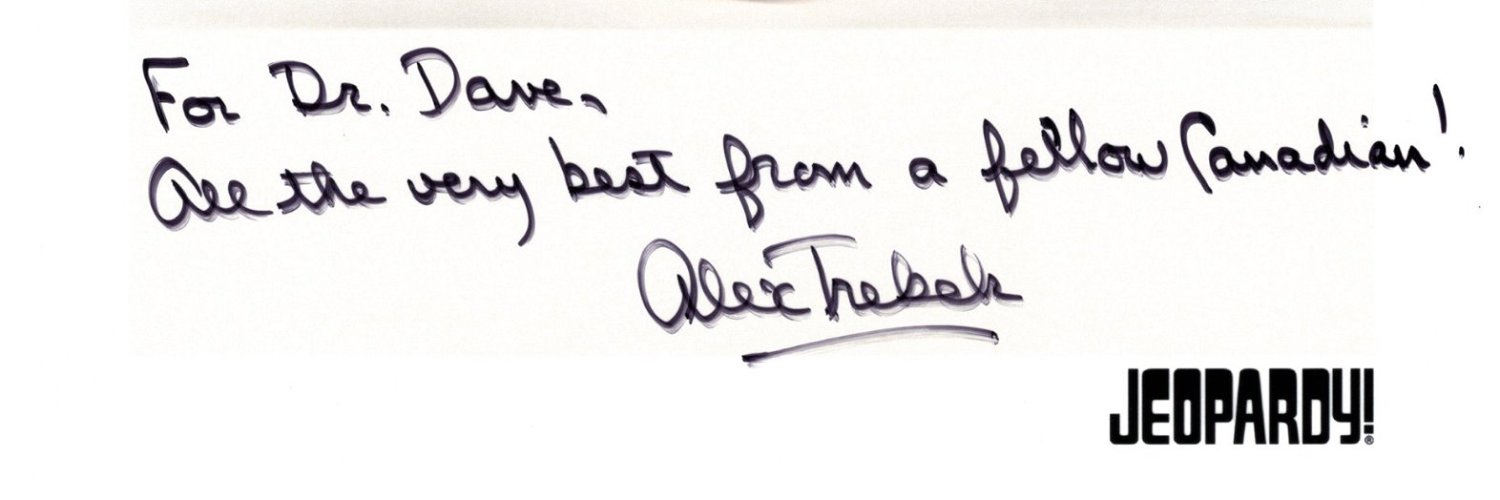 For Dr. Dave,
All the very best from a fellow Canadian!
Alex Trebek
JEOPARDY!®